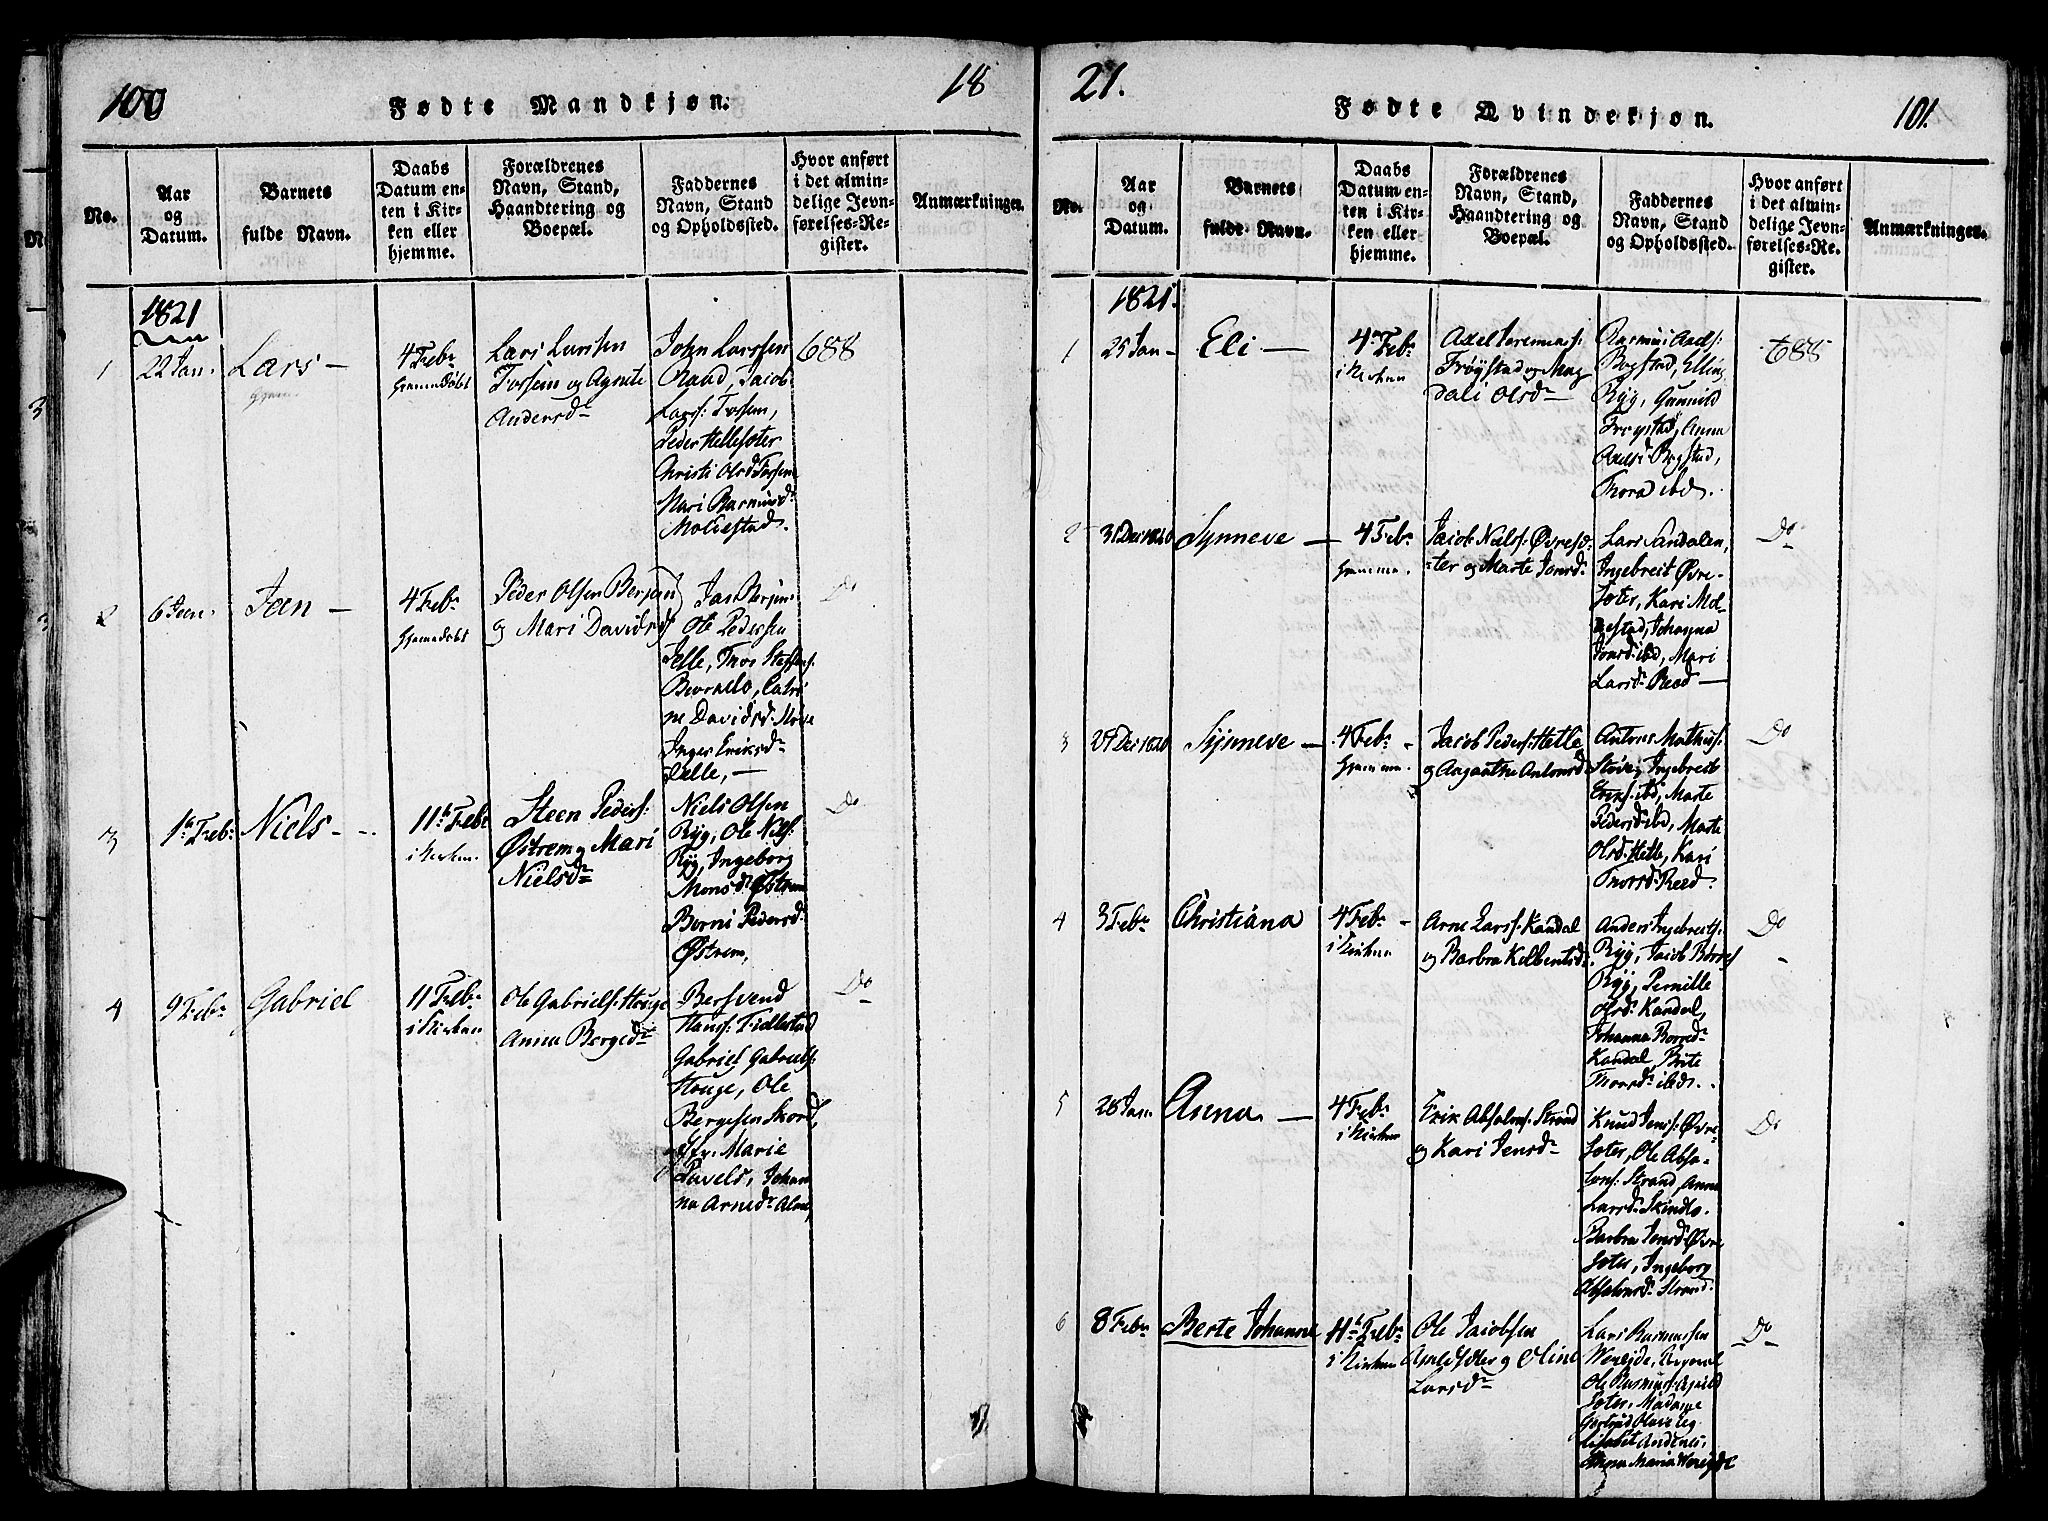 100
Fødte Mandkjøn.
18
No.
Aar
og
Datum.
Barnets
fulde Navn.
Daabs
Datum en-
ten i Kir-
ken eller
hjemme.
Forældrenes
Navn, Stand,
Haandtering og
Boepæl.
Faddernes
Navn, Stand
og Opholdssted.
Hvor anført
i det almin-
delige Jevn-
førelses-Re-
gister.
Anmærkninger.
1821
1
22 Jan.
Lars —
4 Febr
hjemedøbt
Lars Larssen
Fossem og Agnete
Andersdr
John Larssen
Raad, Jacob
Larss: Fossem,
Peder Hellesæter
Christi Olsd Fossem
Mari Rasmusdr
Moldestad.
688
2
6 Jan.
Jan —
4 Febr
hjemedøbt
Peder Olsen Berjem
og Mari Davidsd
Jan Berjem
Ole Pederssen
Jelle, Thor Steffens:
Bernelo, Catri
ne Davidsd.
Inger Eriksdr
Jelle, —
Do
3
1te Febr
Niels —
11te Febr
i Kirken.
Steen Peders:
Østrem og Mari
Nielsdr
Niels Olsen
Ryg, Ole Nils:
Ryg, Ingeborg
Monsdr Østrem
Borni Pedersdr
Østrem,
Do
4
9 Febr
Gabriel
11 Febr
i Kirken
Ole Gabriels: Houge
Anna Bergedr
Bersvend
Hanss: Fidlestad
Gabriel Gabriels:
Houge, Ole
Bergesen Skord,
Jfr. Marie
Pavels, Johan
na Arnedr
Do
21.
Fødte Qvindekjøn.
101.
No.
Aar
og
Datum.
Barnets
fulde Navn.
Daabs
Datum en-
ten i Kir-
ken eller
hjemme.
Forældrenes
Navn, Stand,
Haandtering og
Boepæl.
Faddernes
Navn, Stand
og Opholdssted.
Hvor anført
i det almin-
delige Jevn-
førelses-Re-
gister.
Anmærkninger.
1821.
1
25 Jan —
Eli —
4de Febr
i Kirken
Axel Jeremias:
Frøystad og Mag
dali Olsdr
Rasmus Axels:
Bogstad, Elling
Ryg, Gunnild
Frøystad, Anna
Axelsd Bogstad,
Thora ibd.
688
2
31 Dec 1820
Synneve —
4 Febr
hjemme.
Jacob Niels: Øvresæ-
ter og Marte Jonsdr
Lars Sandalen,
Ingebreit Øvre-
sæter, Kari Mol-
destad, Johanna
Jonsd ibd, Mari
Larsdr Reed —
Do
3
27 Dec 1820
Synneve —
4 Febr —
hjemme.
Jacob Peders: Hetle
og Anganthe Antonsd
Antons Mathias:
Støve, Ingebreit
Eriks: ibd, Marte
Pedersd ibd, Marte
Olsd: Hetle, Kari
Thorsd: Reed.
Do
4
3 Febr
Christiana
4 Febr —
i Kirken
Arne Larss: Kandal
og Barbra Kolbentsdr
Anders Ingebreits:
Ryg, Jacob
Ryg, Pernille
Olsdr Kandal,
Johanna
Kandal, Brite
Thorsdr ibd.
Do
5
28 Jan.
Anna —
4 Febr
i Kirken
Erik Absalons: Strand
og Kari Jensdr
Knud Jens: Øvre-
sæter, Ole Absa-
lons: Strand, Anna
Larsdr Skindlo.
Barbra Jensd: Øvre
sæter, Ingeborg
Absalonsdr Strand.
Do
6
8 Febr
Berte Johanne
11te Febr
i Kirken
Ole Jacobsen
og Oline
Larsdr
Lars Rasmussen
Wereide,
Ole Rasmus:
sæter, Madame
Gertrud Olave
lisabet Andenes,
Anna Maria Wereide
Do